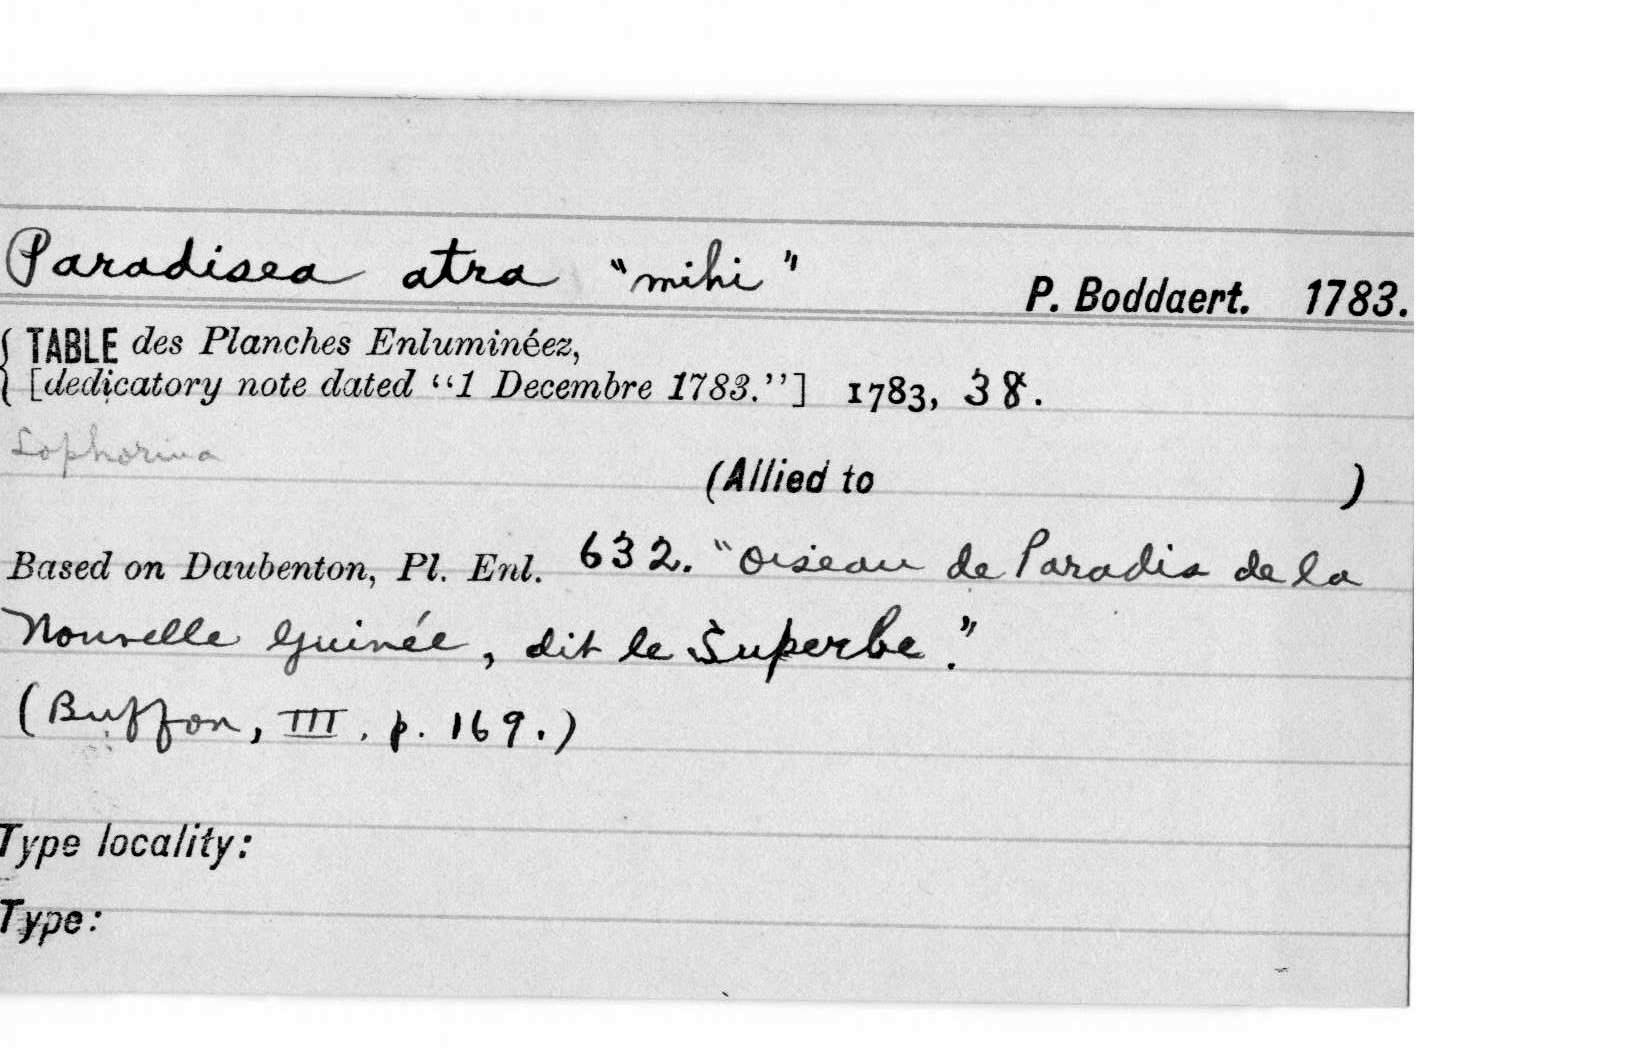 Paradisea atra "mihi" P. Boddaert. 1783.
{ TABLE des Planches Enluminéez,
[dedicatory note dated "1 Decembre 1783."] 1783, 38.
Lophorina
(Allied to )
Based on Daubenton, Pl. Enl. 632. "Oiseau de Paradis de la
Nouvelle Guinée, dit le Superbe."
(Buffon, III. p. 169.)
Type locality:
Type: